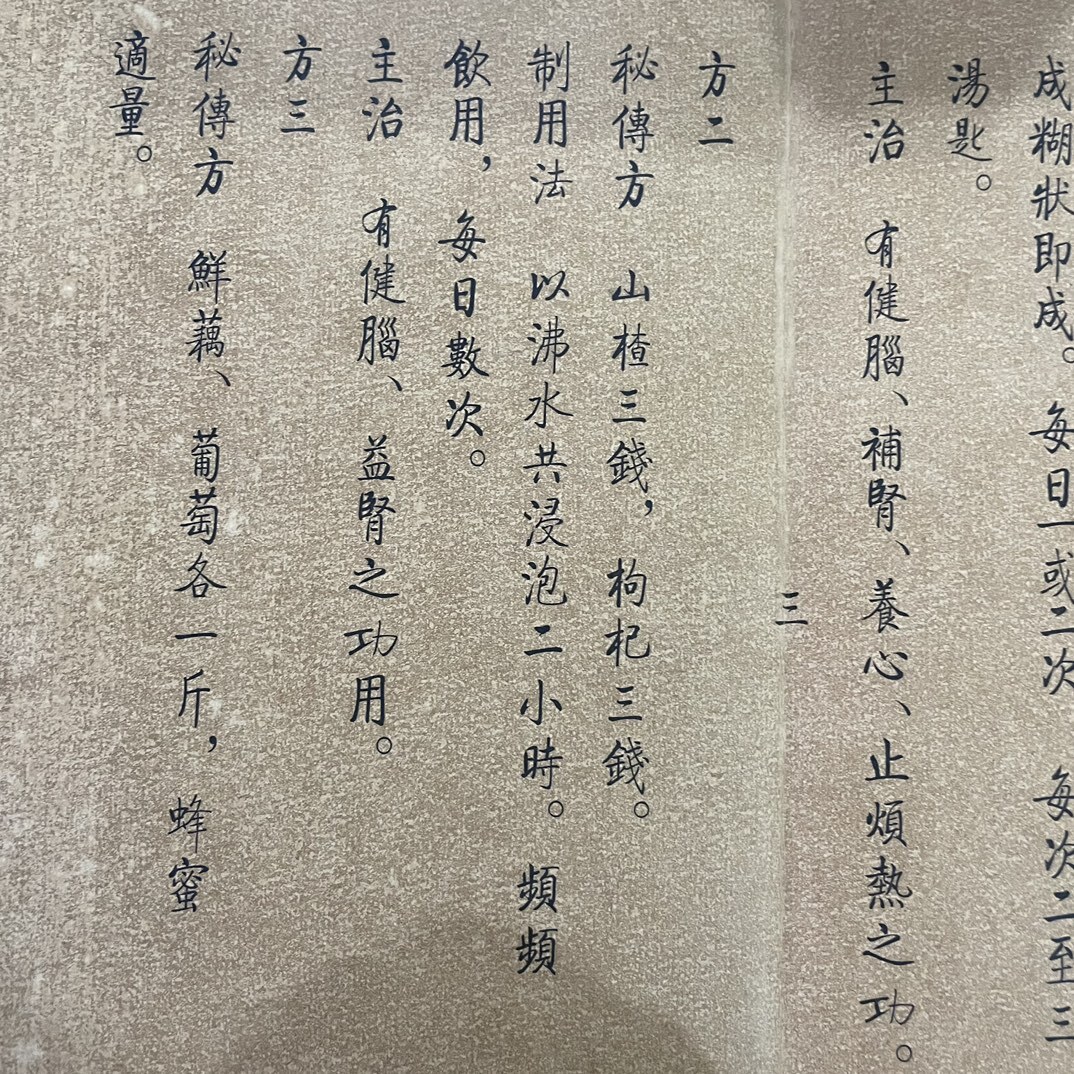 成糊狀即成。每日一或二次 每次二至三
湯匙。
主治 有健腦、補腎、養心、止煩熱之功。
三
方二
秘傳方 山楂三錢，枸杞三錢。
制用法 以沸水共浸泡二小時。頻頻
飲用，每日數次。
主治 有健腦、益腎之功用。
方三
秘傳方 鮮藕、葡萄各一斤，蜂蜜
適量。